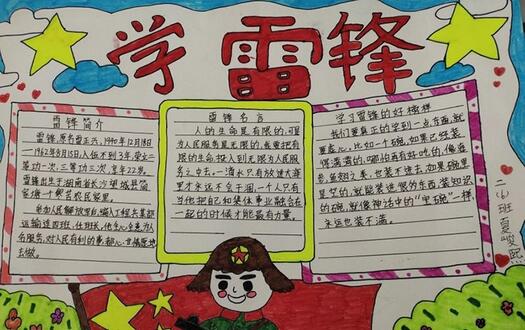 学雷锋
雷锋简介
雷锋,原名雷正兴,1940年12月18日
—1962年8月15日入伍不到3年,荣立二
等功一次、三等功三次 享年22岁。
雷锋出生于湖南省长沙望城县简
家塘一个贫苦农民家里。
参加人民解放军
运输连四班,任班长,他全心全意为人
名服务,对人民有利的事
去做。
雷锋名言
人的生命是有限的,可是
为人民服务是无限的,我要把有
限的生命投入到无限为人民服
务之中去。一滴水只有放进大海
里才永远不会干涸,一个人只有
当他把自己和集体事业融合在
一起的时候才能最有力量。
学习雷锋的好榜样
我们要真正的学到一点东西,就
要虚心。比如一个碗,如果已经装
得满满的,哪怕再有好吃的,像燕
窝,鱼翅之类,也装不进去,如果碗里
是空的,就能装进很多东西。装知识
的碗,就像神话中的“宝碗”一样,
永远也装不满。
二(6)班夏